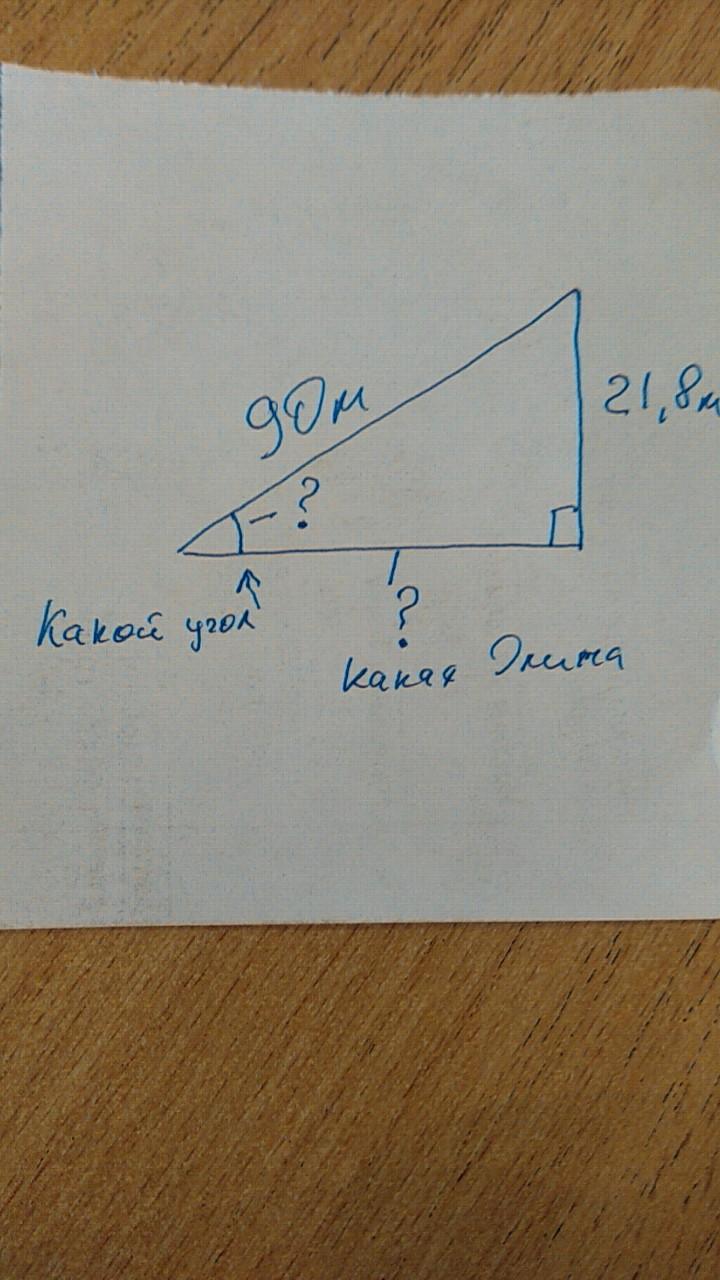 90м
21,8м
?
Какой угол
?
Какая Длина